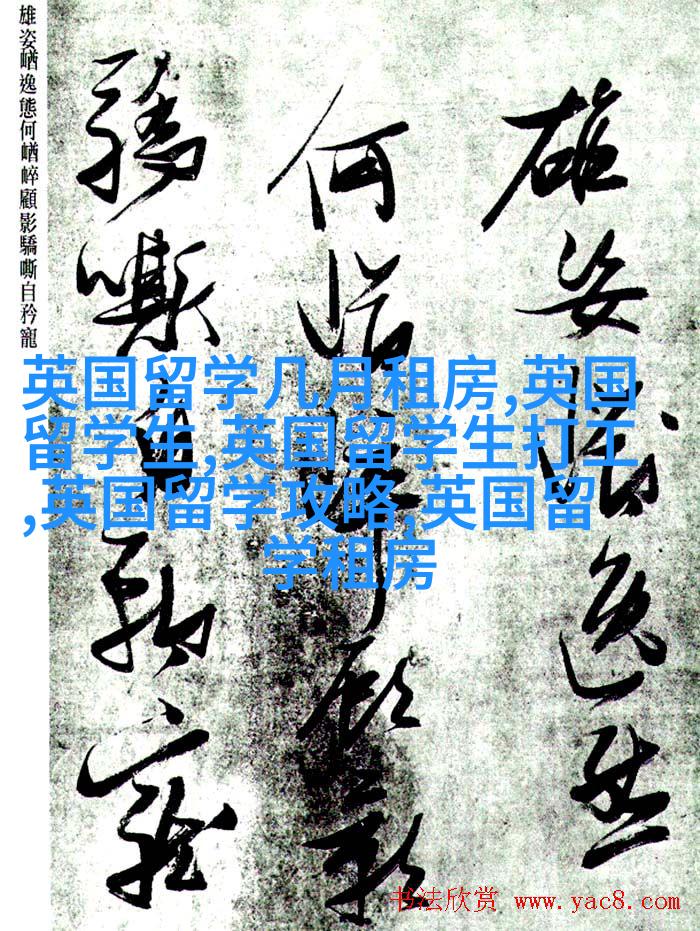 雄姿崷逸態
何崷崪顧影
驕嘶自矜寵
雄姿崷逸態何崷崪顧影驕嘶自矜寵
英国留学几月租房,英国
留学生,英国留学生打工
,英国留学攻略,英国留
学租房
书法欣赏 www.yac8.com